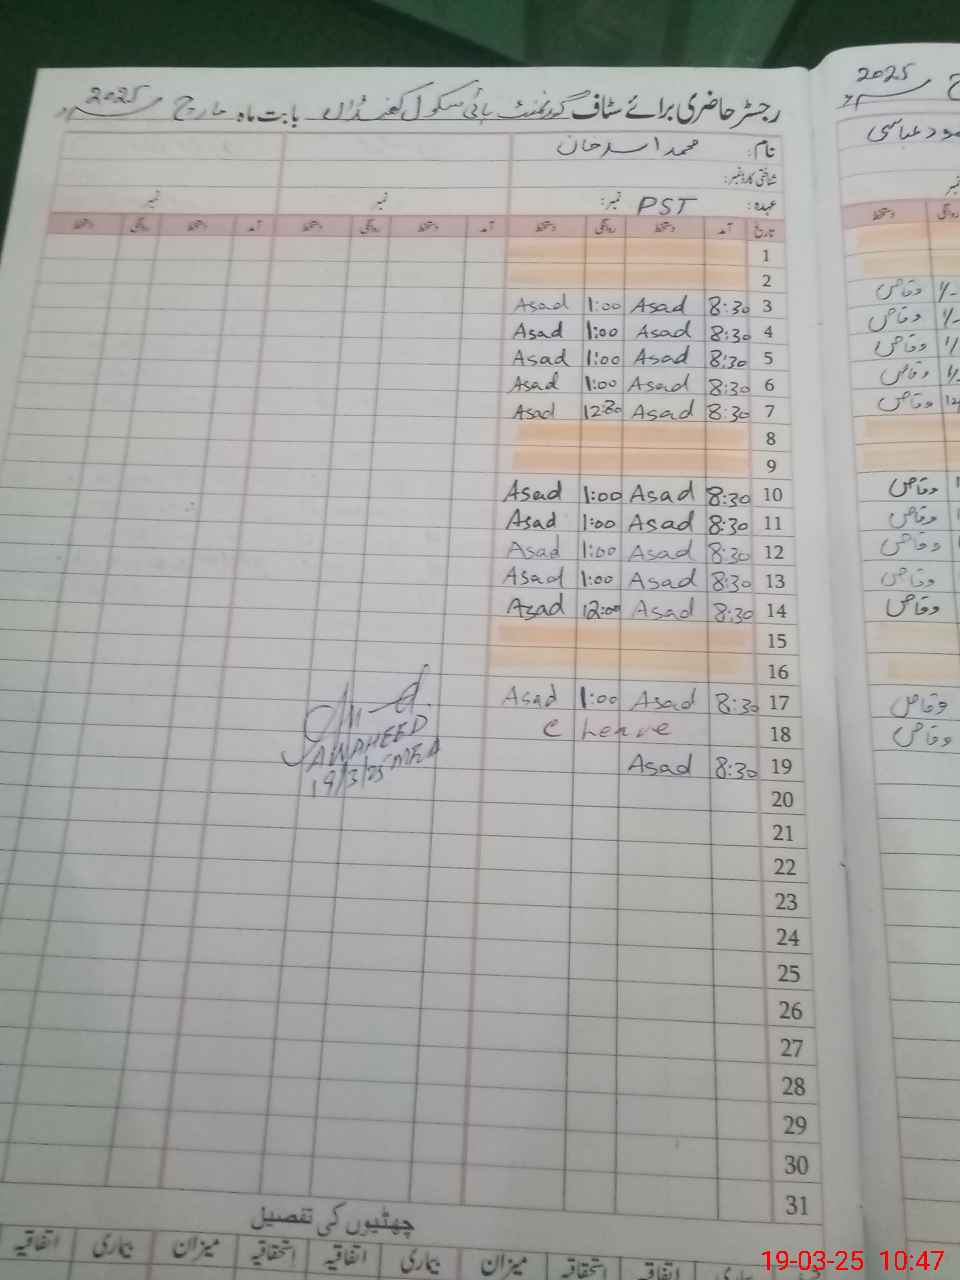 رجسٹر حاضری برائے سٹاف گورنمنٹ ہائی سکول بابت ماہ مارچ 2025
نام: محمد اسد خان
شناختی کارڈ نمبر:
عہدہ: PST نمبر: نمبر نمبر
تاریخ آمد دستخط روانگی دستخط آمد دستخط روانگی دستخط آمد دستخط روانگی دستخط
1
2
3 8:30 Asad 1:00 Asad
4 8:30 Asad 1:00 Asad
5 8:30 Asad 1:00 Asad
6 8:30 Asad 1:00 Asad
7 8:30 Asad 12:30 Asad
8
9
10 8:30 Asad 1:00 Asad
11 8:30 Asad 1:00 Asad
12 8:30 Asad 1:00 Asad
13 8:30 Asad 1:00 Asad
14 8:30 Asad 12:00 Asad
15
16
17 8:30 Asad 1:00 Asad
18 C Leave
19 8:30 Asad
20
21
22
23
24
25
26
27
28
29
30
31
AWAHEED
19/3/25 MEA
چھٹیوں کی تفصیل
اتفاقیہ استحقاقیہ میزان بیماری اتفاقیہ استحقاقیہ میزان بیماری اتفاقیہ
2025
عباسی
نمبر
روانگی دستخط
وقاص
وقاص
وقاص
وقاص
وقاص
وقاص
وقاص
وقاص
وقاص
وقاص
وقاص
وقاص
19-03-25 10:47